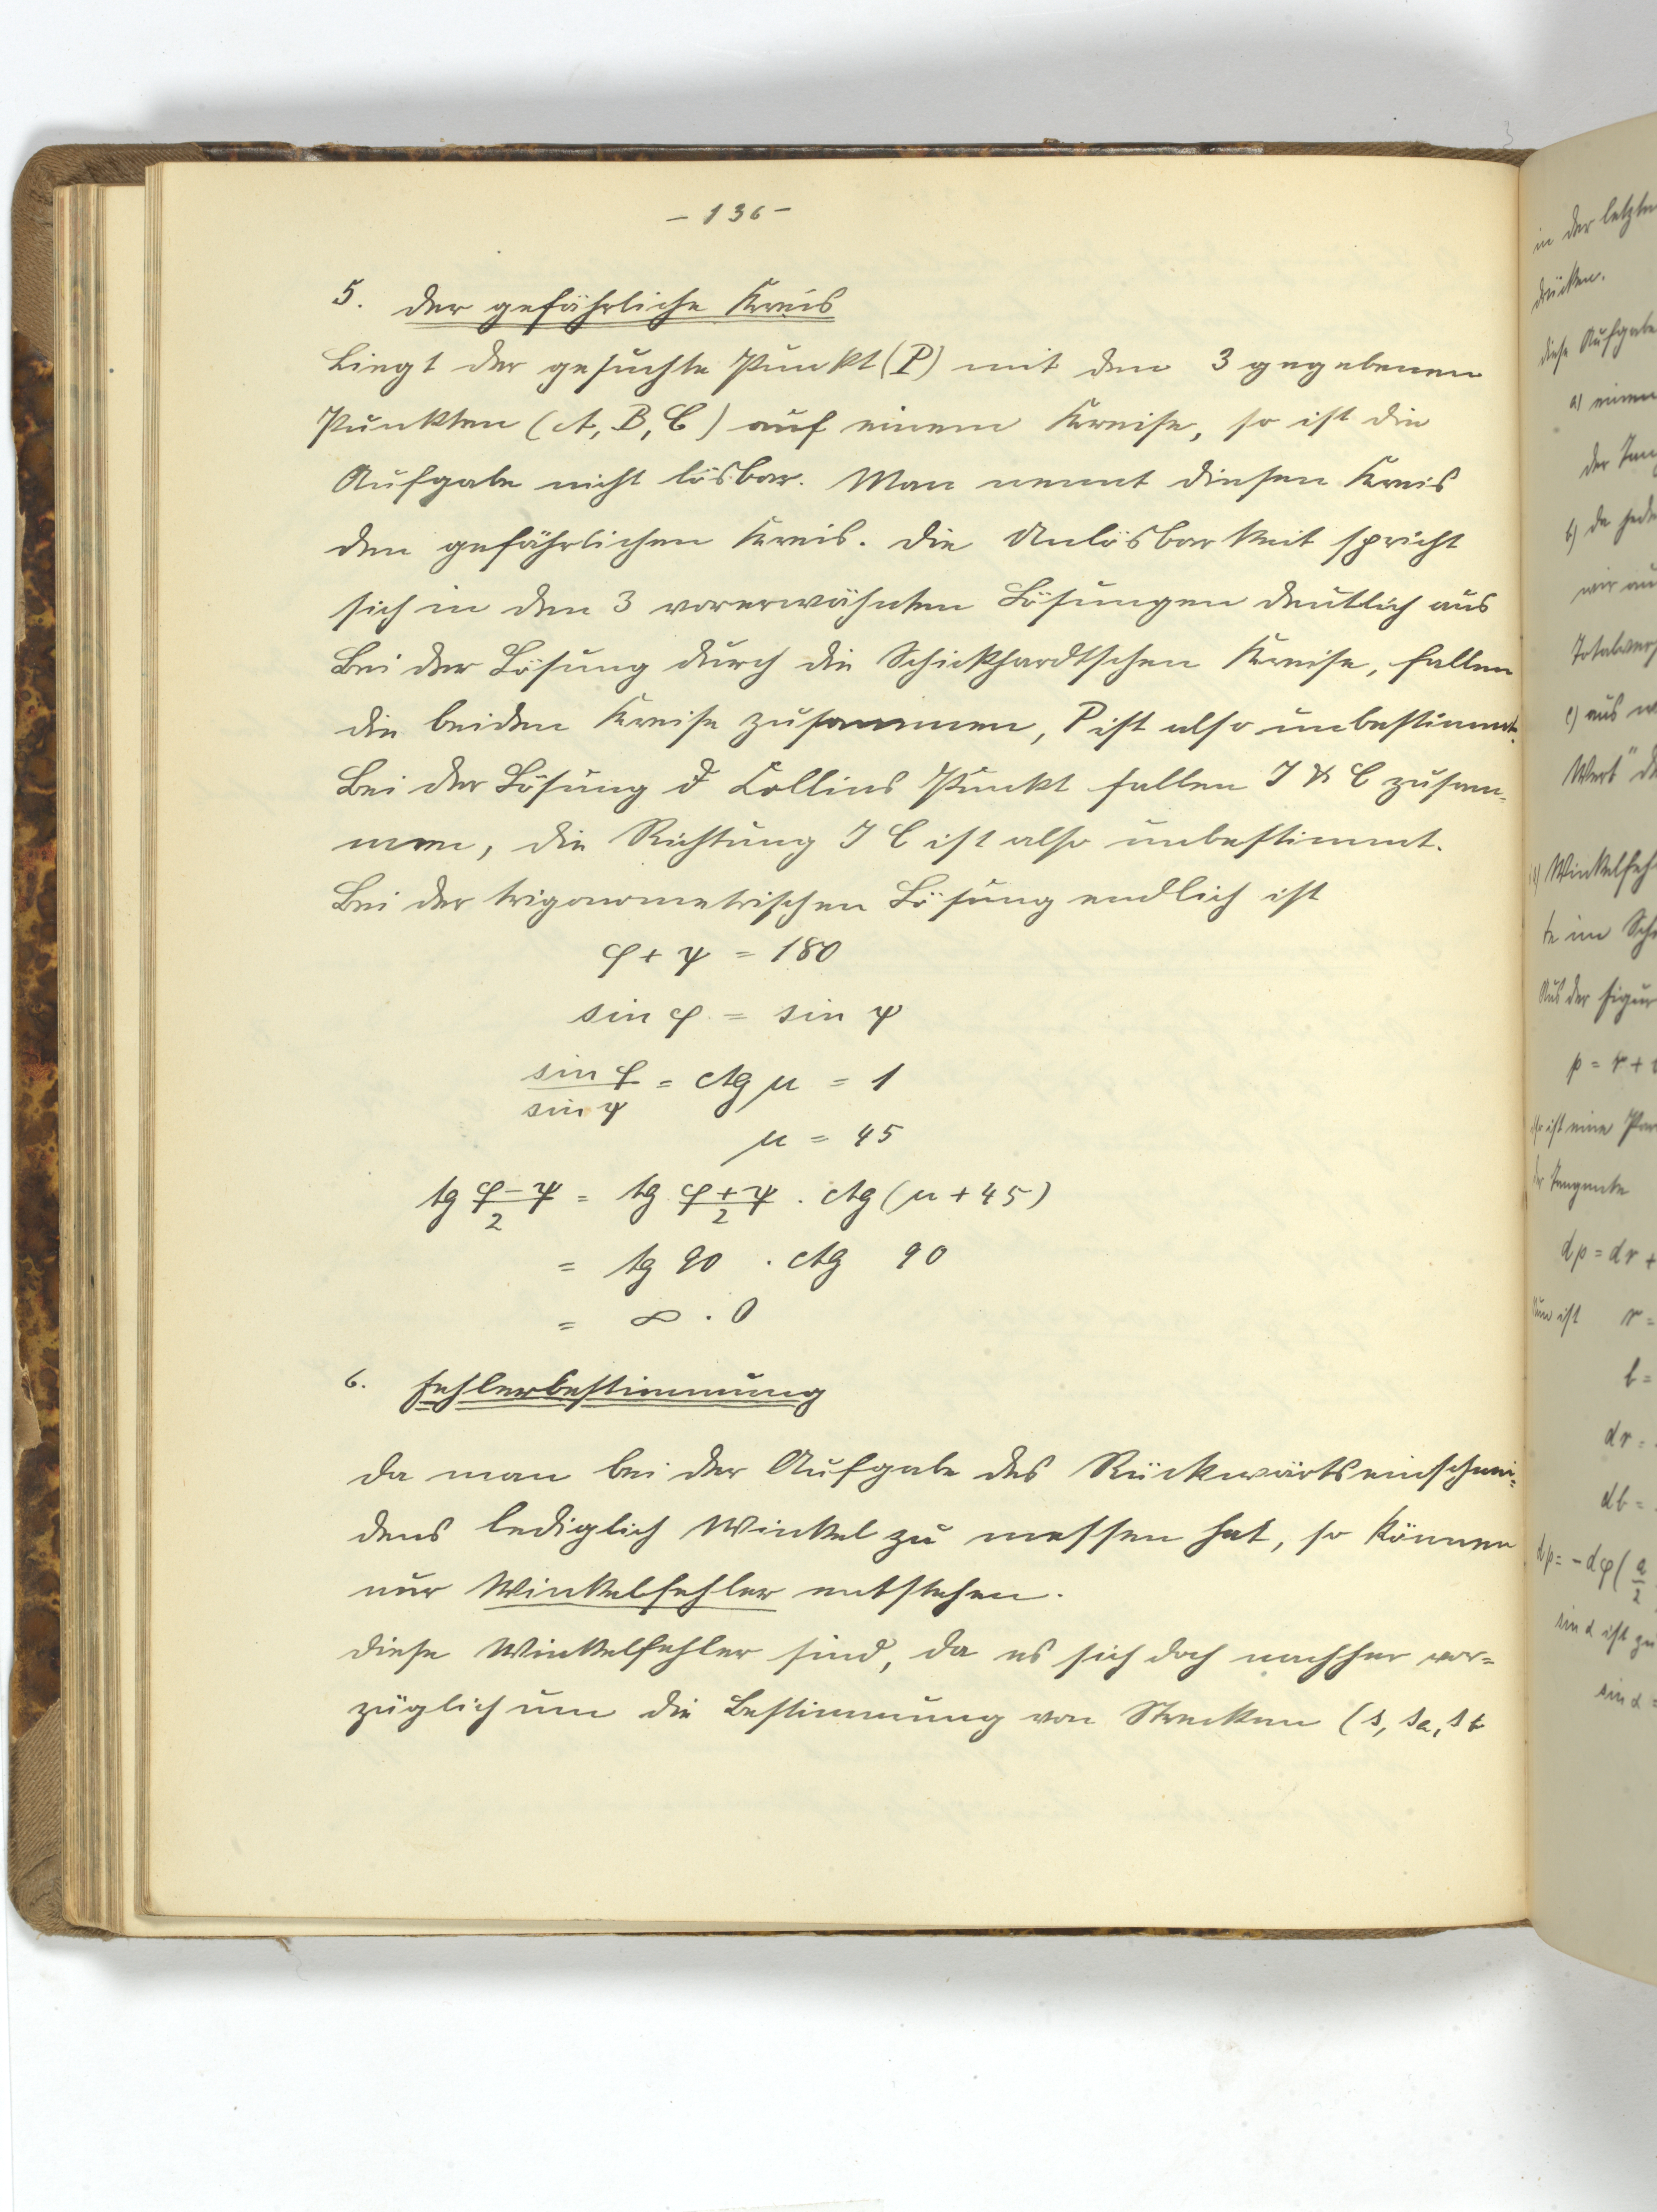 - 136 -
5. der gefährliche Kreis
Liegt der gesuchte Punkt (P) mit den 3 gegebenen
Punkten (A, B, C) auf einem Kreise, so ist die
Aufgabe nicht lösbar. Man nennt diesen Kreis
den gefährlichen Kreis. Die Unlösbarkeit spricht
sich in den 3 vorerwähnten Lösungen deutlich aus
Bei der Lösung durch die Schickhardtschen Kreise, fallen
die beiden Kreise zusammen, P ist also unbestimmt.
Bei der Lösung d Collins Punkt fallen J & C zusam-
men, die Richtung J C ist also unbestimmt.
Bei der trigonometrischen Lösung endlich ist
φ + ψ = 180
sin φ = sin ψ
sin φ / sin ψ = ctg μ = 1
μ = 45
tg (φ-ψ)/2 = tg (φ+ψ)/2 . ctg (μ + 45)
= tg 90 . ctg 90
= ∞ . 0
6. Fehlerbestimmung
Da man bei der Aufgabe des Rückwärtseinschnei=
dens lediglich Winkel zu messen hat, so können
nur Winkelfehler entstehen.
Diese Winkelfehler sind, da es sich doch nachher vor=
züglich um die Bestimmung von Strecken (s, sa, sb
in der letzten
drücken.
diese Aufgabe
a) einen
b) da jede
wir au
c) aus
Wert" de
Winkelfeh
te im Sch
Aus der Figur
p = r +
ist eine Par
der Tangente
dp = dr +
Nun ist r =
b =
dr =
db =
dp = - dφ ( a/2
sin α ist zu
sin α =